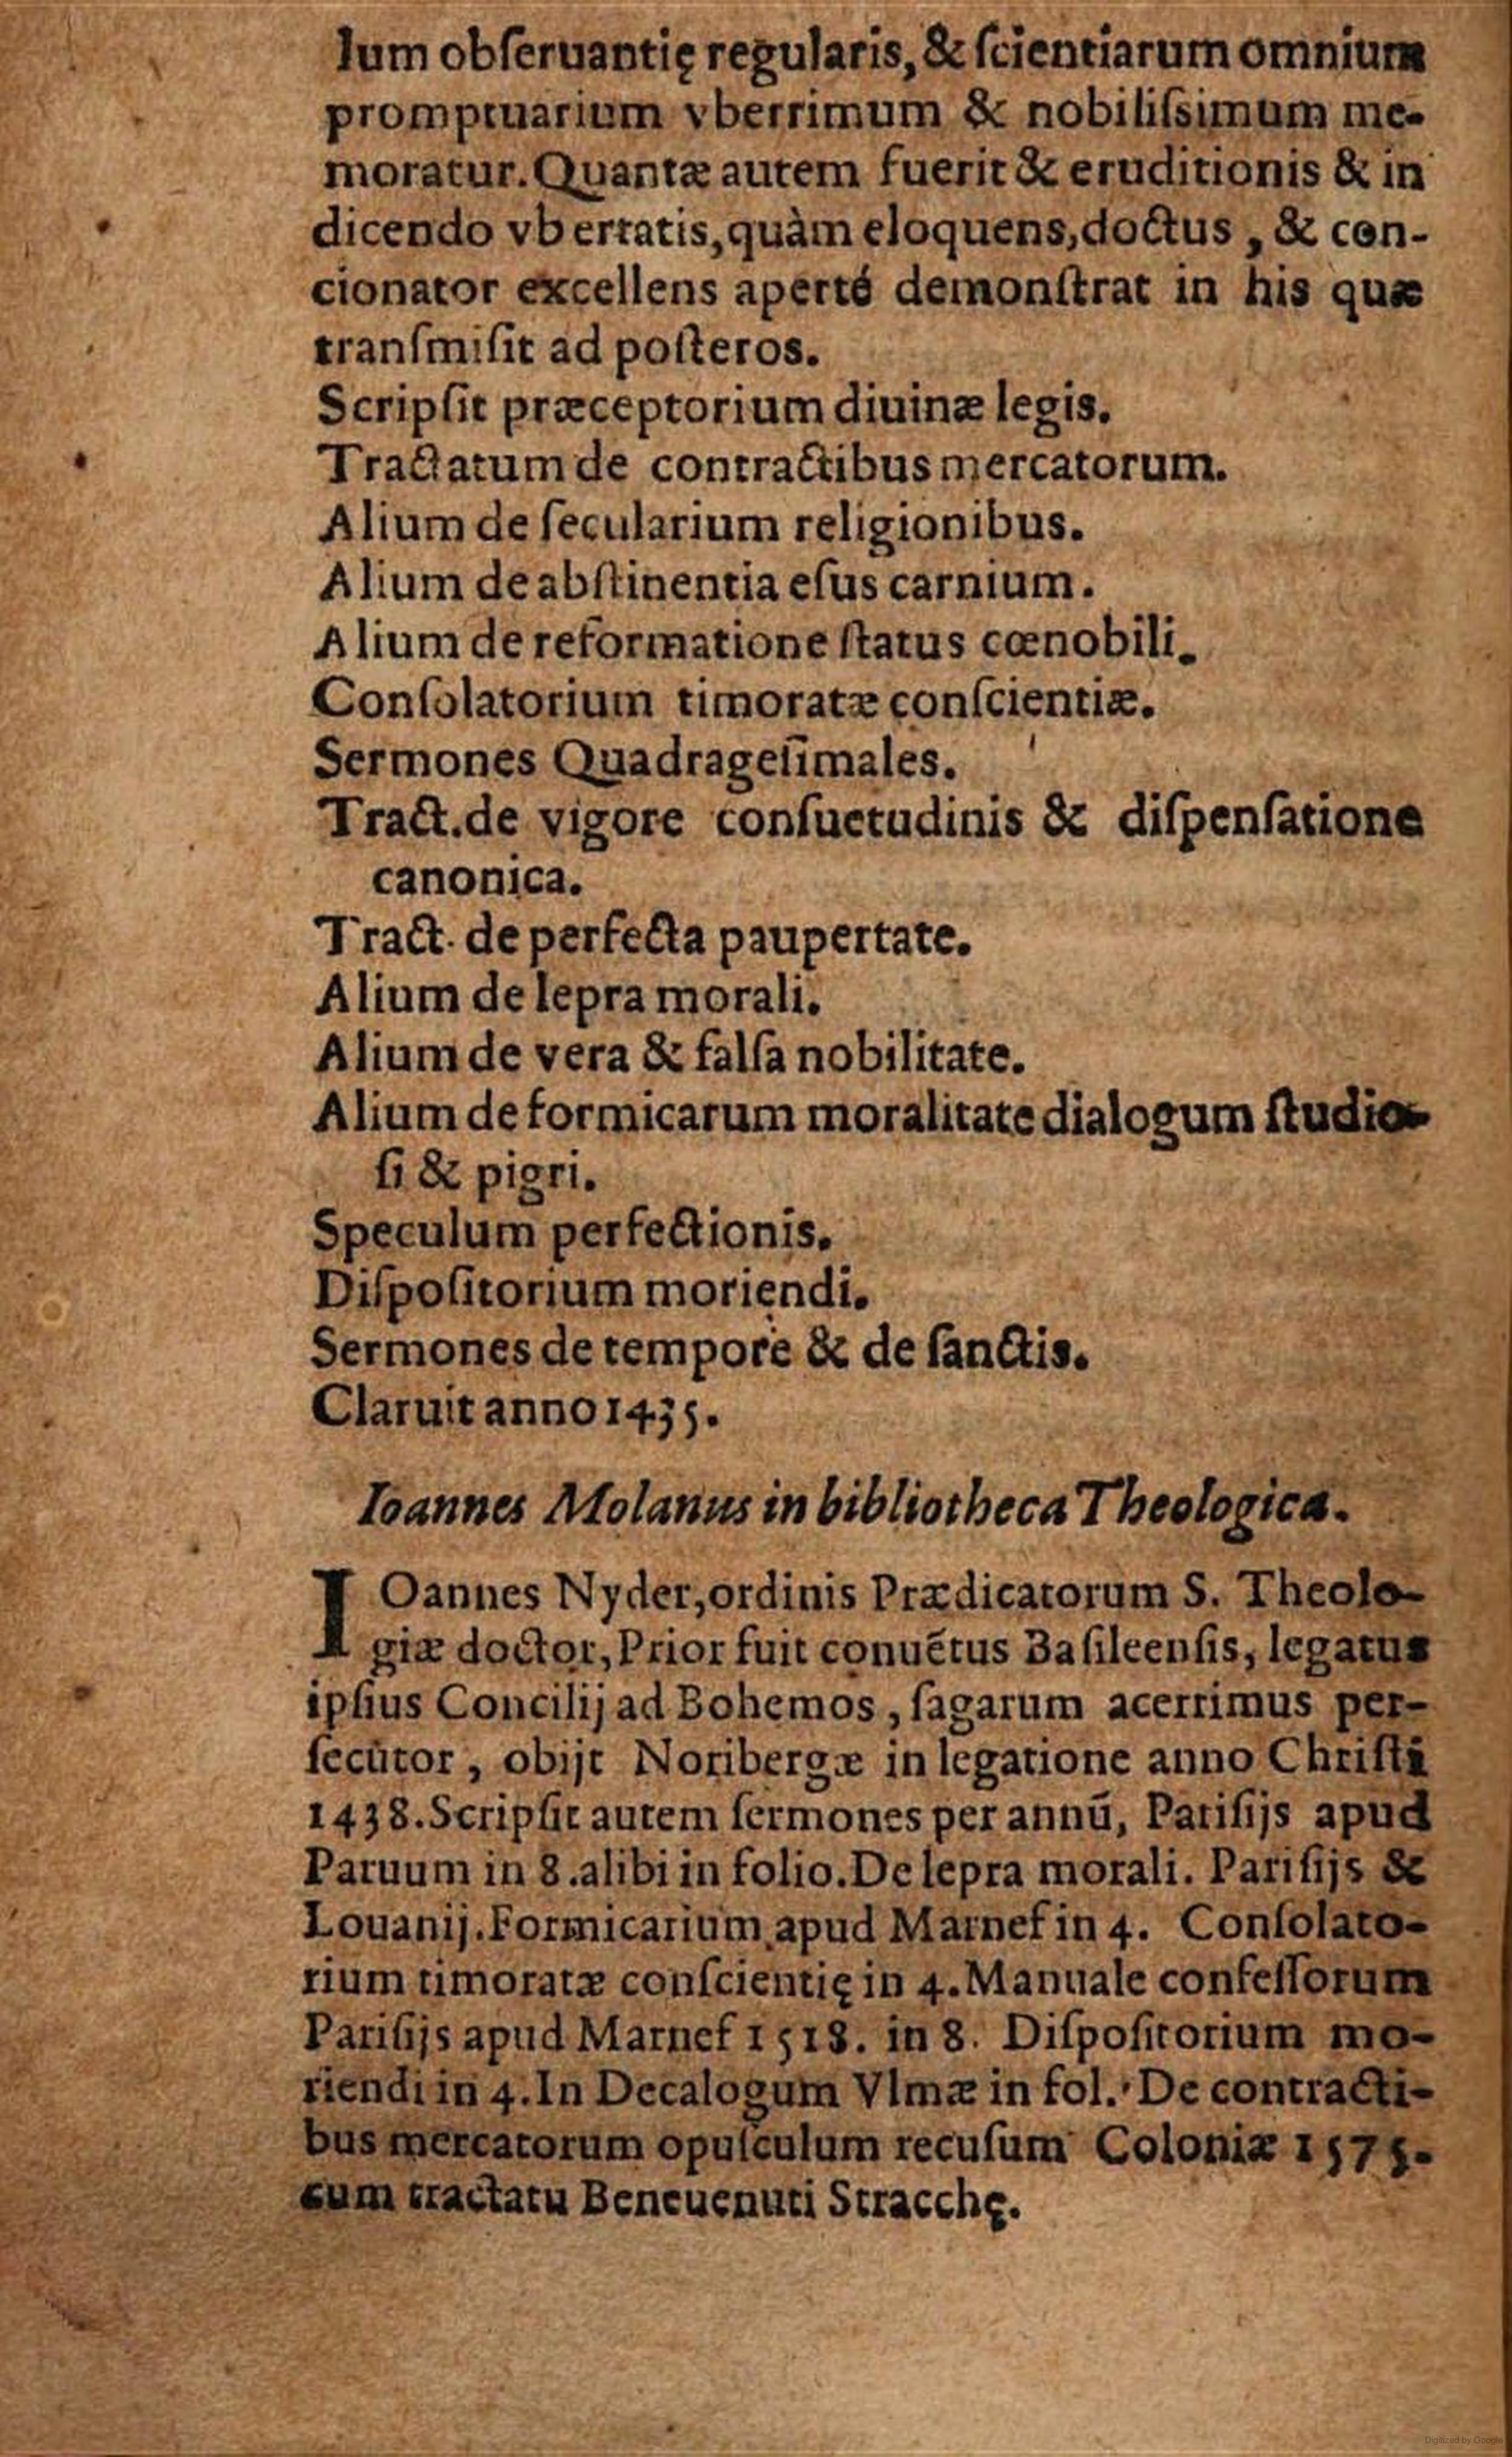 lum obſeruantię regularis, & ſcientiarum omnium
promptuarium vberrimum & nobiliſsimum me-
moratur. Quantæ autem fuerit & eruditionis & in
dicendo vbertatis, quàm eloquens, doctus, & con-
cionator excellens aperté demonſtrat in his quæ
tranſmiſit ad poſteros.
Scripſit præceptorium diuinæ legis.
Tractatum de contractibus mercatorum.
Alium de ſecularium religionibus.
Alium de abſtinentia eſus carnium.
Alium de reformatione ſtatus cœnobili.
Conſolatorium timoratæ conſcientiæ.
Sermones Quadrageſimales.
Tract. de vigore conſuetudinis & diſpenſatione
canonica.
Tract. de perfecta paupertate.
Alium de lepra morali.
Alium de vera & falſa nobilitate.
Alium de formicarum moralitate dialogum ſtudio-
ſi & pigri.
Speculum perfectionis.
Diſpoſitorium moriendi.
Sermones de tempore & de ſanctis.
Claruit anno 1435.
Ioannes Molanus in bibliotheca Theologica.
IOannes Nyder, ordinis Prædicatorum S. Theolo-
giæ doctor, Prior fuit conuẽtus Baſileenſis, legatus
ipſius Concilij ad Bohemos, ſagarum acerrimus per-
ſecutor, obijt Noribergæ in legatione anno Chriſti
1438. Scripſit autem ſermones per annũ, Pariſijs apud
Paruum in 8. alibi in folio. De lepra morali. Pariſijs &
Louanij. Formicarium apud Marnef in 4. Conſolato-
rium timoratæ conſcientię in 4. Manuale confeſſorum
Pariſijs apud Marnef 1518. in 8. Diſpoſitorium mo-
riendi in 4. In Decalogum Vlmæ in fol. De contracti-
bus mercatorum opuſculum recuſum Coloniæ 1575.
cum tractatu Beneuenuti Stracchę.
Digitized by Google